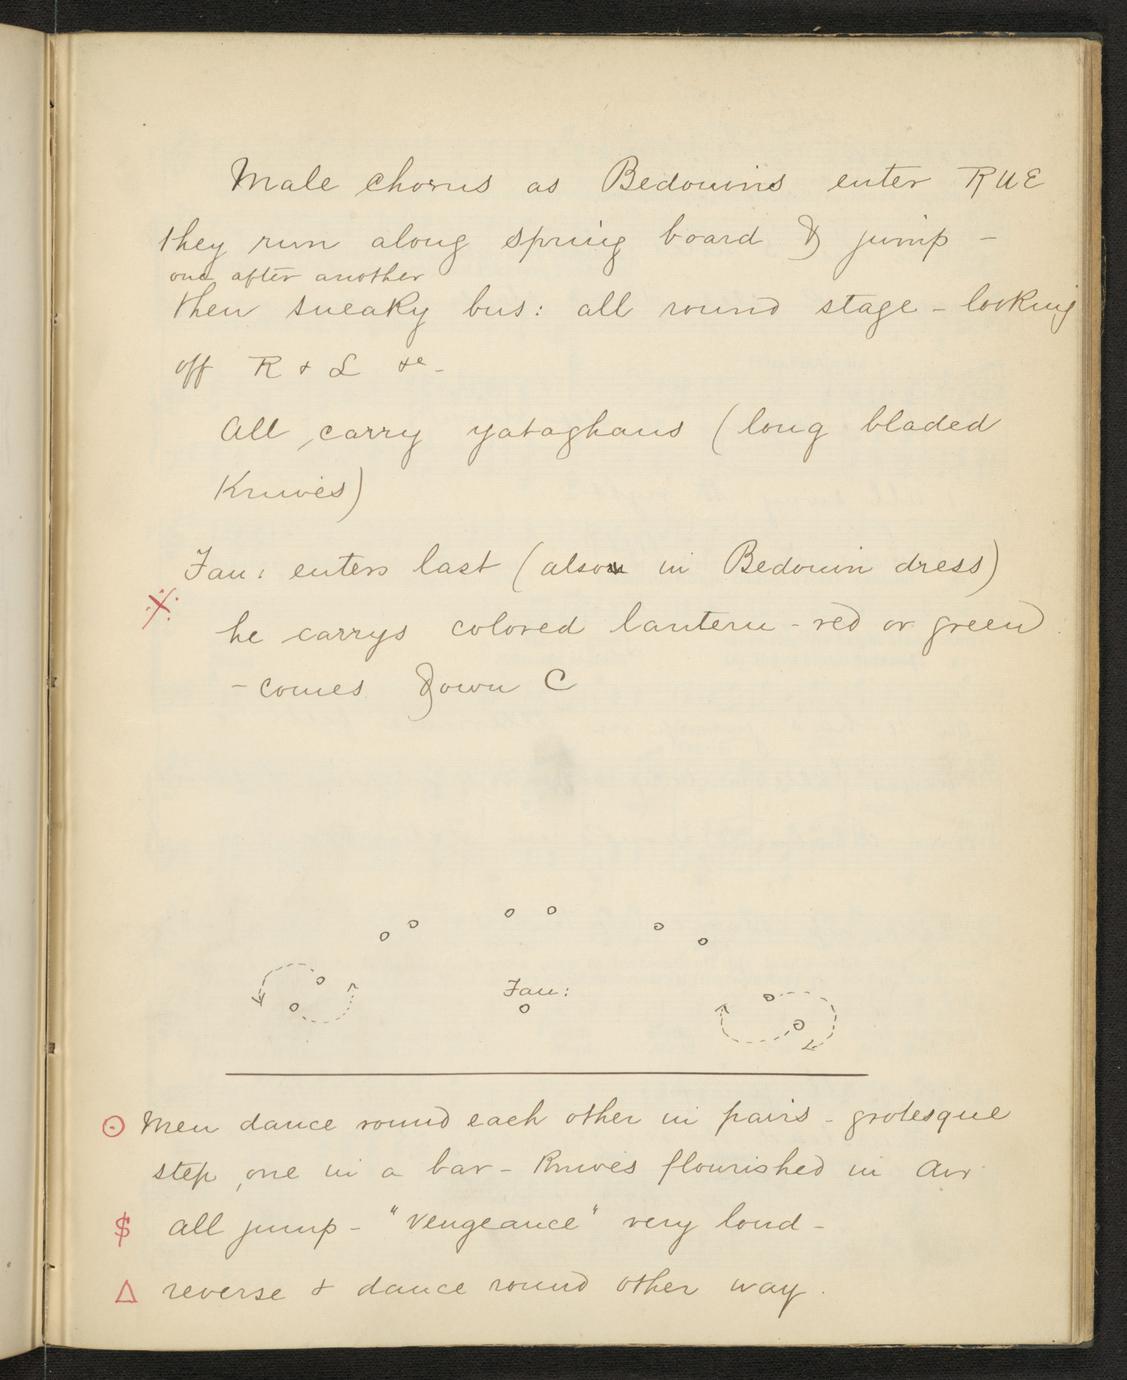 Male chorus as Bedouins enter R U E
they run along spring board & jump -
one after another
then sneaky bus: all round stage - looking
off R & L &c -
All carry yataghans (long bladed
Knives)
Fau: enters last (also in Bedouin dress)
he carrys colored lantern - red or green
- comes down C
Fau:
Men dance round each other in pairs - grotesque
step, one in a bar - Knives flourished in Air
$ all jump - "Vengeance" very loud -
Δ reverse & dance round other way.